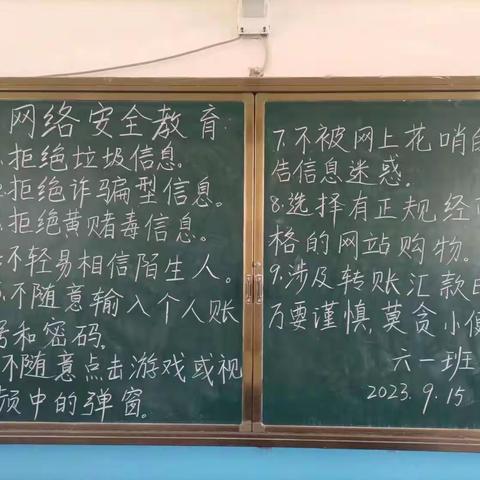 网络安全教育
.拒绝垃圾信息。
.拒绝诈骗型信息。
.拒绝黄赌毒信息。
不轻易相信陌生人。
.不随意输入个人账
号和密码.
不随意点击游戏或视
频中的弹窗.
7.不被网上花哨的
告信息迷惑.
8.选择有正规经
格的网站购物。
9.涉及转账汇款
万要谨慎,莫贪小便
六一班
2023.9.15